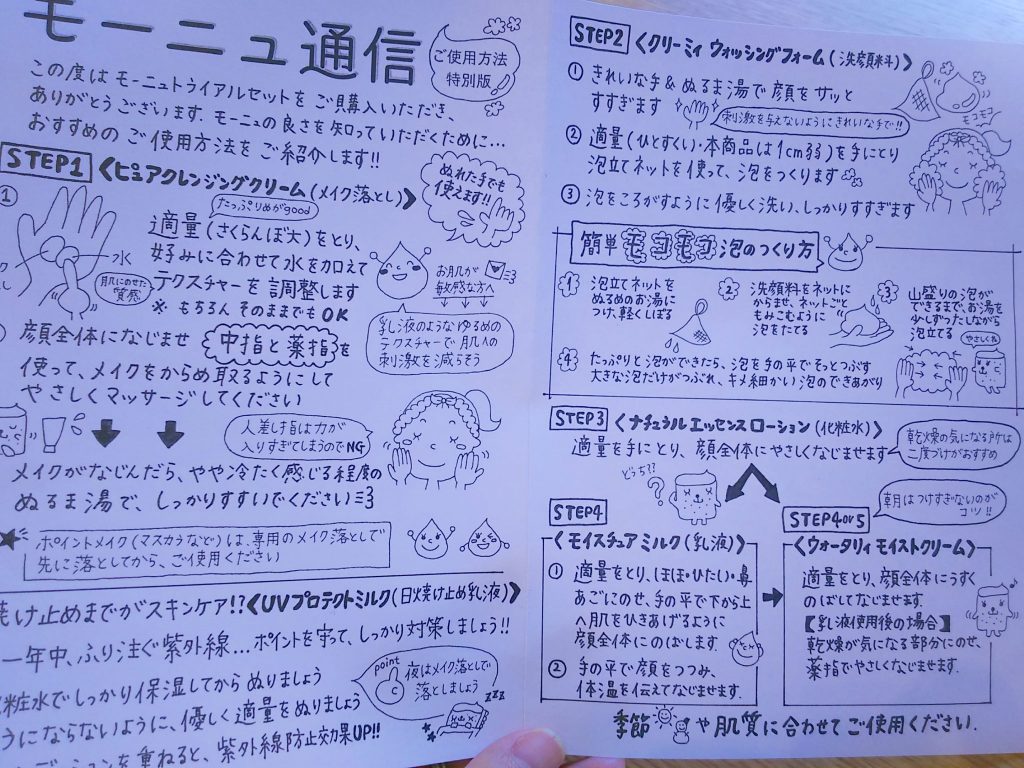 モーニュ通信
ご使用方法
特別版
この度は モーニュトライアルセットを ご購入いただき、
ありがとうございます。モーニュの良さを知っていただくために…
おすすめの ご使用方法を ご紹介します!!
STEP1 《ピュアクレンジングクリーム(メイク落とし)》
ぬれた手でも
使えます!!
①
水
肌にのせた
質感
たっぷりめがgood
適量(さくらんぼ大)をとり、
お好みに合わせて水を加えて
テクスチャーを調整します
※ もちろん そのままでもOK
お肌が
敏感な方へ
乳液のようなゆるめの
テクスチャーで肌への
刺激を減らそう
顔全体になじませ 中指と薬指を
使って、メイクをからめ取るようにして
やさしくマッサージしてください
人差し指は力が
入りすぎてしまうのでNG
メイクがなじんだら、やや冷たく感じる程度の
ぬるま湯で、しっかりすすいでください
★ ポイントメイク(マスカラなど)は、専用のメイク落としで
先に落としてから、ご使用ください
焼け止めまでがスキンケア!?《UVプロテクトミルク(日焼け止め乳液)》
一年中、ふり注ぐ紫外線…ポイントを守って、しっかり対策しましょう!!
化粧水でしっかり保湿してから ぬりましょう
うにならないように、優しく適量をぬりましょう
を重ねると、紫外線防止効果UP!!
point
夜はメイク落としで
落としましょう
zzz
STEP2 《クリーミィ ウォッシングフォーム(洗顔料)》
① きれいな手&ぬるま湯で顔をサッと
すすぎます
刺激を与えないようにきれいな手で!!
モコモコ
② 適量(ひとすくい・本商品は1cm弱)を手にとり
泡立てネットを使って、泡をつくります
③ 泡をころがすように優しく洗い、しっかりすすぎます
簡単モコモコ泡のつくり方
1 泡立てネットを
ぬるめのお湯に
つけ、軽くしぼる
2 洗顔料をネットに
からませ、ネットごと
もみこむように
泡をたてる
3 山盛りの泡が
できるまで、お湯を
少しずつたしながら
泡立てる
やさしくね
4 たっぷりと泡ができたら、泡を手の平でそっとつぶす
大きな泡だけがつぶれ、キメ細かい泡のできあがり
STEP3 《ナチュラルエッセンスローション(化粧水)》
適量を手にとり、顔全体にやさしくなじませます
乾燥の気になる所は
二度づけがおすすめ
どっち??
朝はつけすぎないのが
コツ!!
STEP4
《モイスチュアミルク(乳液)》
① 適量をとり、ほほ・ひたい・鼻
あごにのせ、手の平で下から上
へ肌をひきあげるように
顔全体にのばします。
② 手の平で顔をつつみ、
体温を伝えてなじませます。
STEP4or5
《ウォータリィ モイストクリーム》
適量をとり、顔全体にうすく
のばしてなじませます。
【乳液使用後の場合】
乾燥が気になる部分にのせ、
薬指でやさしくなじませます。
季節や肌質に合わせて ご使用ください。